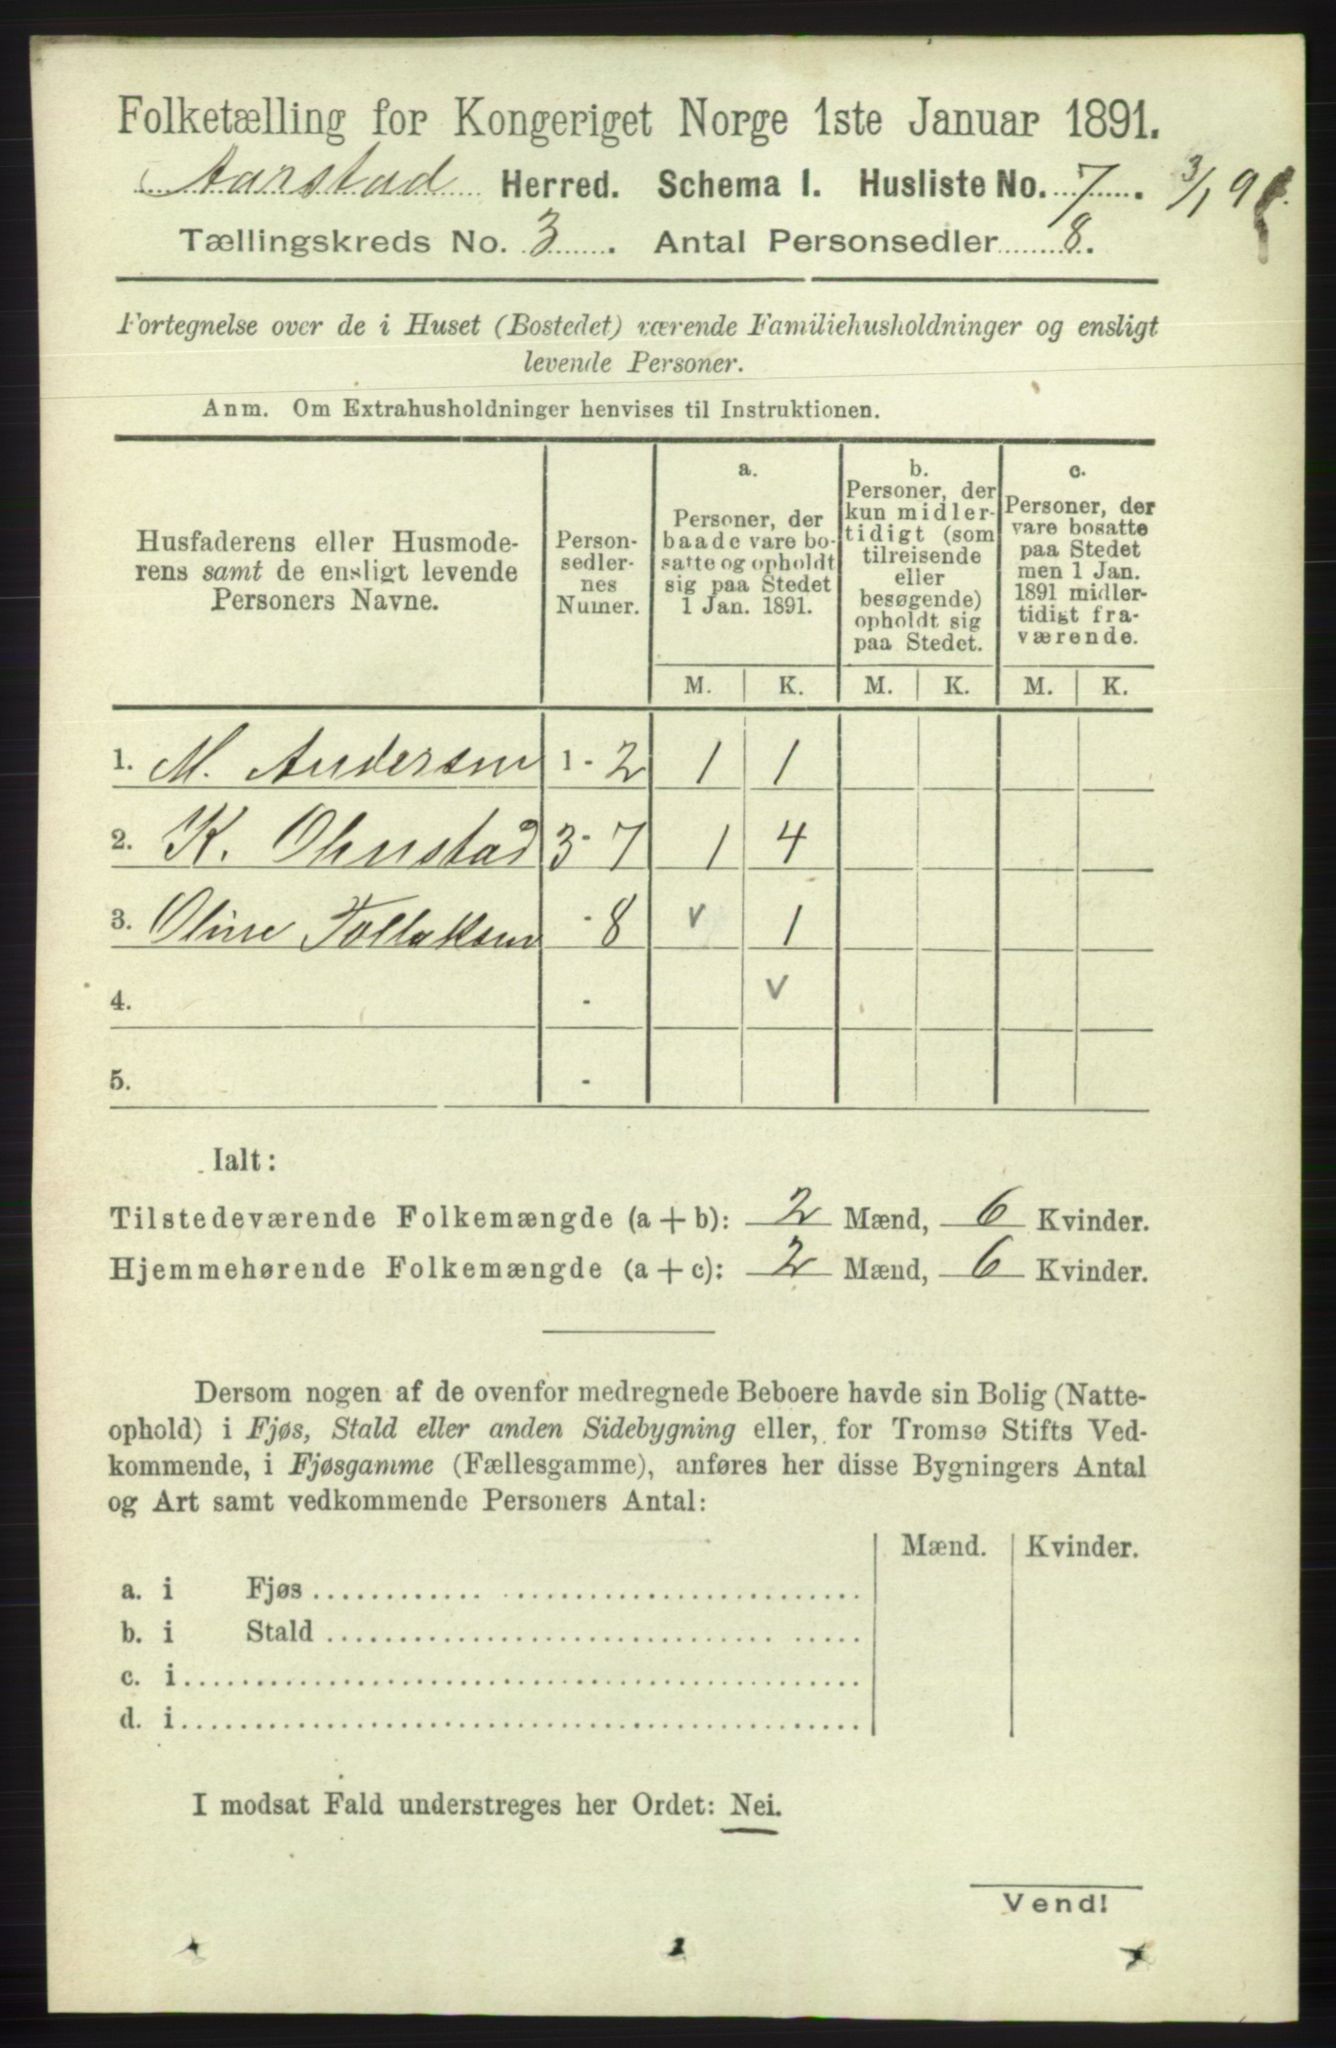 Folketælling for Kongeriget Norge 1ste Januar 1891.
Aarstad Herred. Schema I. Husliste No. 7. 3/1 91.
Tællingskreds No. 3. Antal Personsedler 8.
Fortegnelse over de i Huset (Bostedet) værende Familiehusholdninger og ensligt
levende Personer.
Anm. Om Extrahusholdninger henvises til Instruktionen.
Husfaderens eller Husmode-
rens samt de ensligt levende
Personers Navne.
Person-
sedler-
nes
Numer.
a.
Personer, der
baade vare bo-
satte og opholdt
sig paa Stedet
1 Jan. 1891.
b.
Personer, der
kun midler-
tidigt (som
tilreisende
eller
besøgende)
opholdt sig
paa Stedet.
c.
Personer, der
vare bosatte
paa Stedet
men 1 Jan.
1891 midler-
tidigt fra-
værende.
M. K. M. K. M. K.
1. M. Andersen 1 - 2 1 1
2. K. Olenstad 3 - 7 1 4
3. Oline Tollaksen - 8 v 1
4. - v
5. -
Ialt:
Tilstedeværende Folkemængde (a + b): 2 Mænd, 6 Kvinder.
Hjemmehørende Folkemængde (a + c): 2 Mænd, 6 Kvinder.
Dersom nogen af de ovenfor medregnede Beboere havde sin Bolig (Natte-
ophold) i Fjøs, Stald eller anden Sidebygning eller, for Tromsø Stifts Ved-
kommende, i Fjøsgamme (Fællesgamme), anføres her disse Bygningers Antal
og Art samt vedkommende Personers Antal:
Mænd. Kvinder.
a. i Fjøs
b. i Stald
c. i
d. i
I modsat Fald understreges her Ordet: Nei.
Vend!